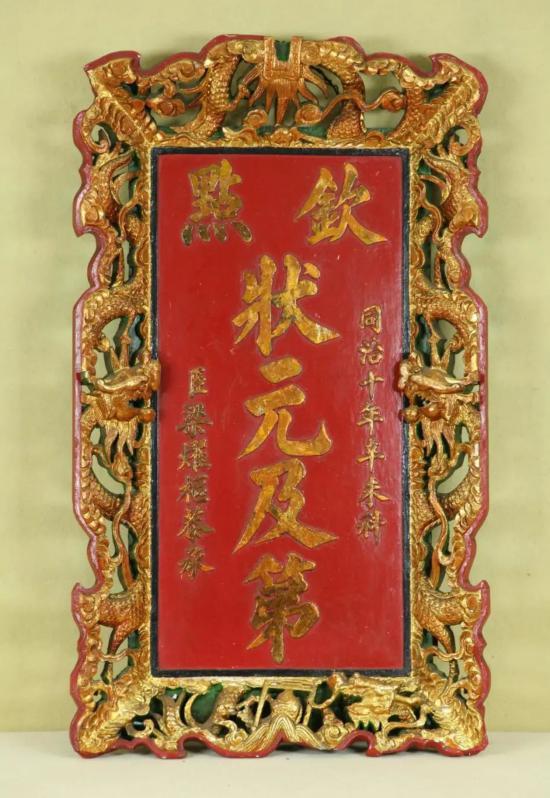 欽點
同治十年辛未科
狀元及第
臣梁燿樞恭承